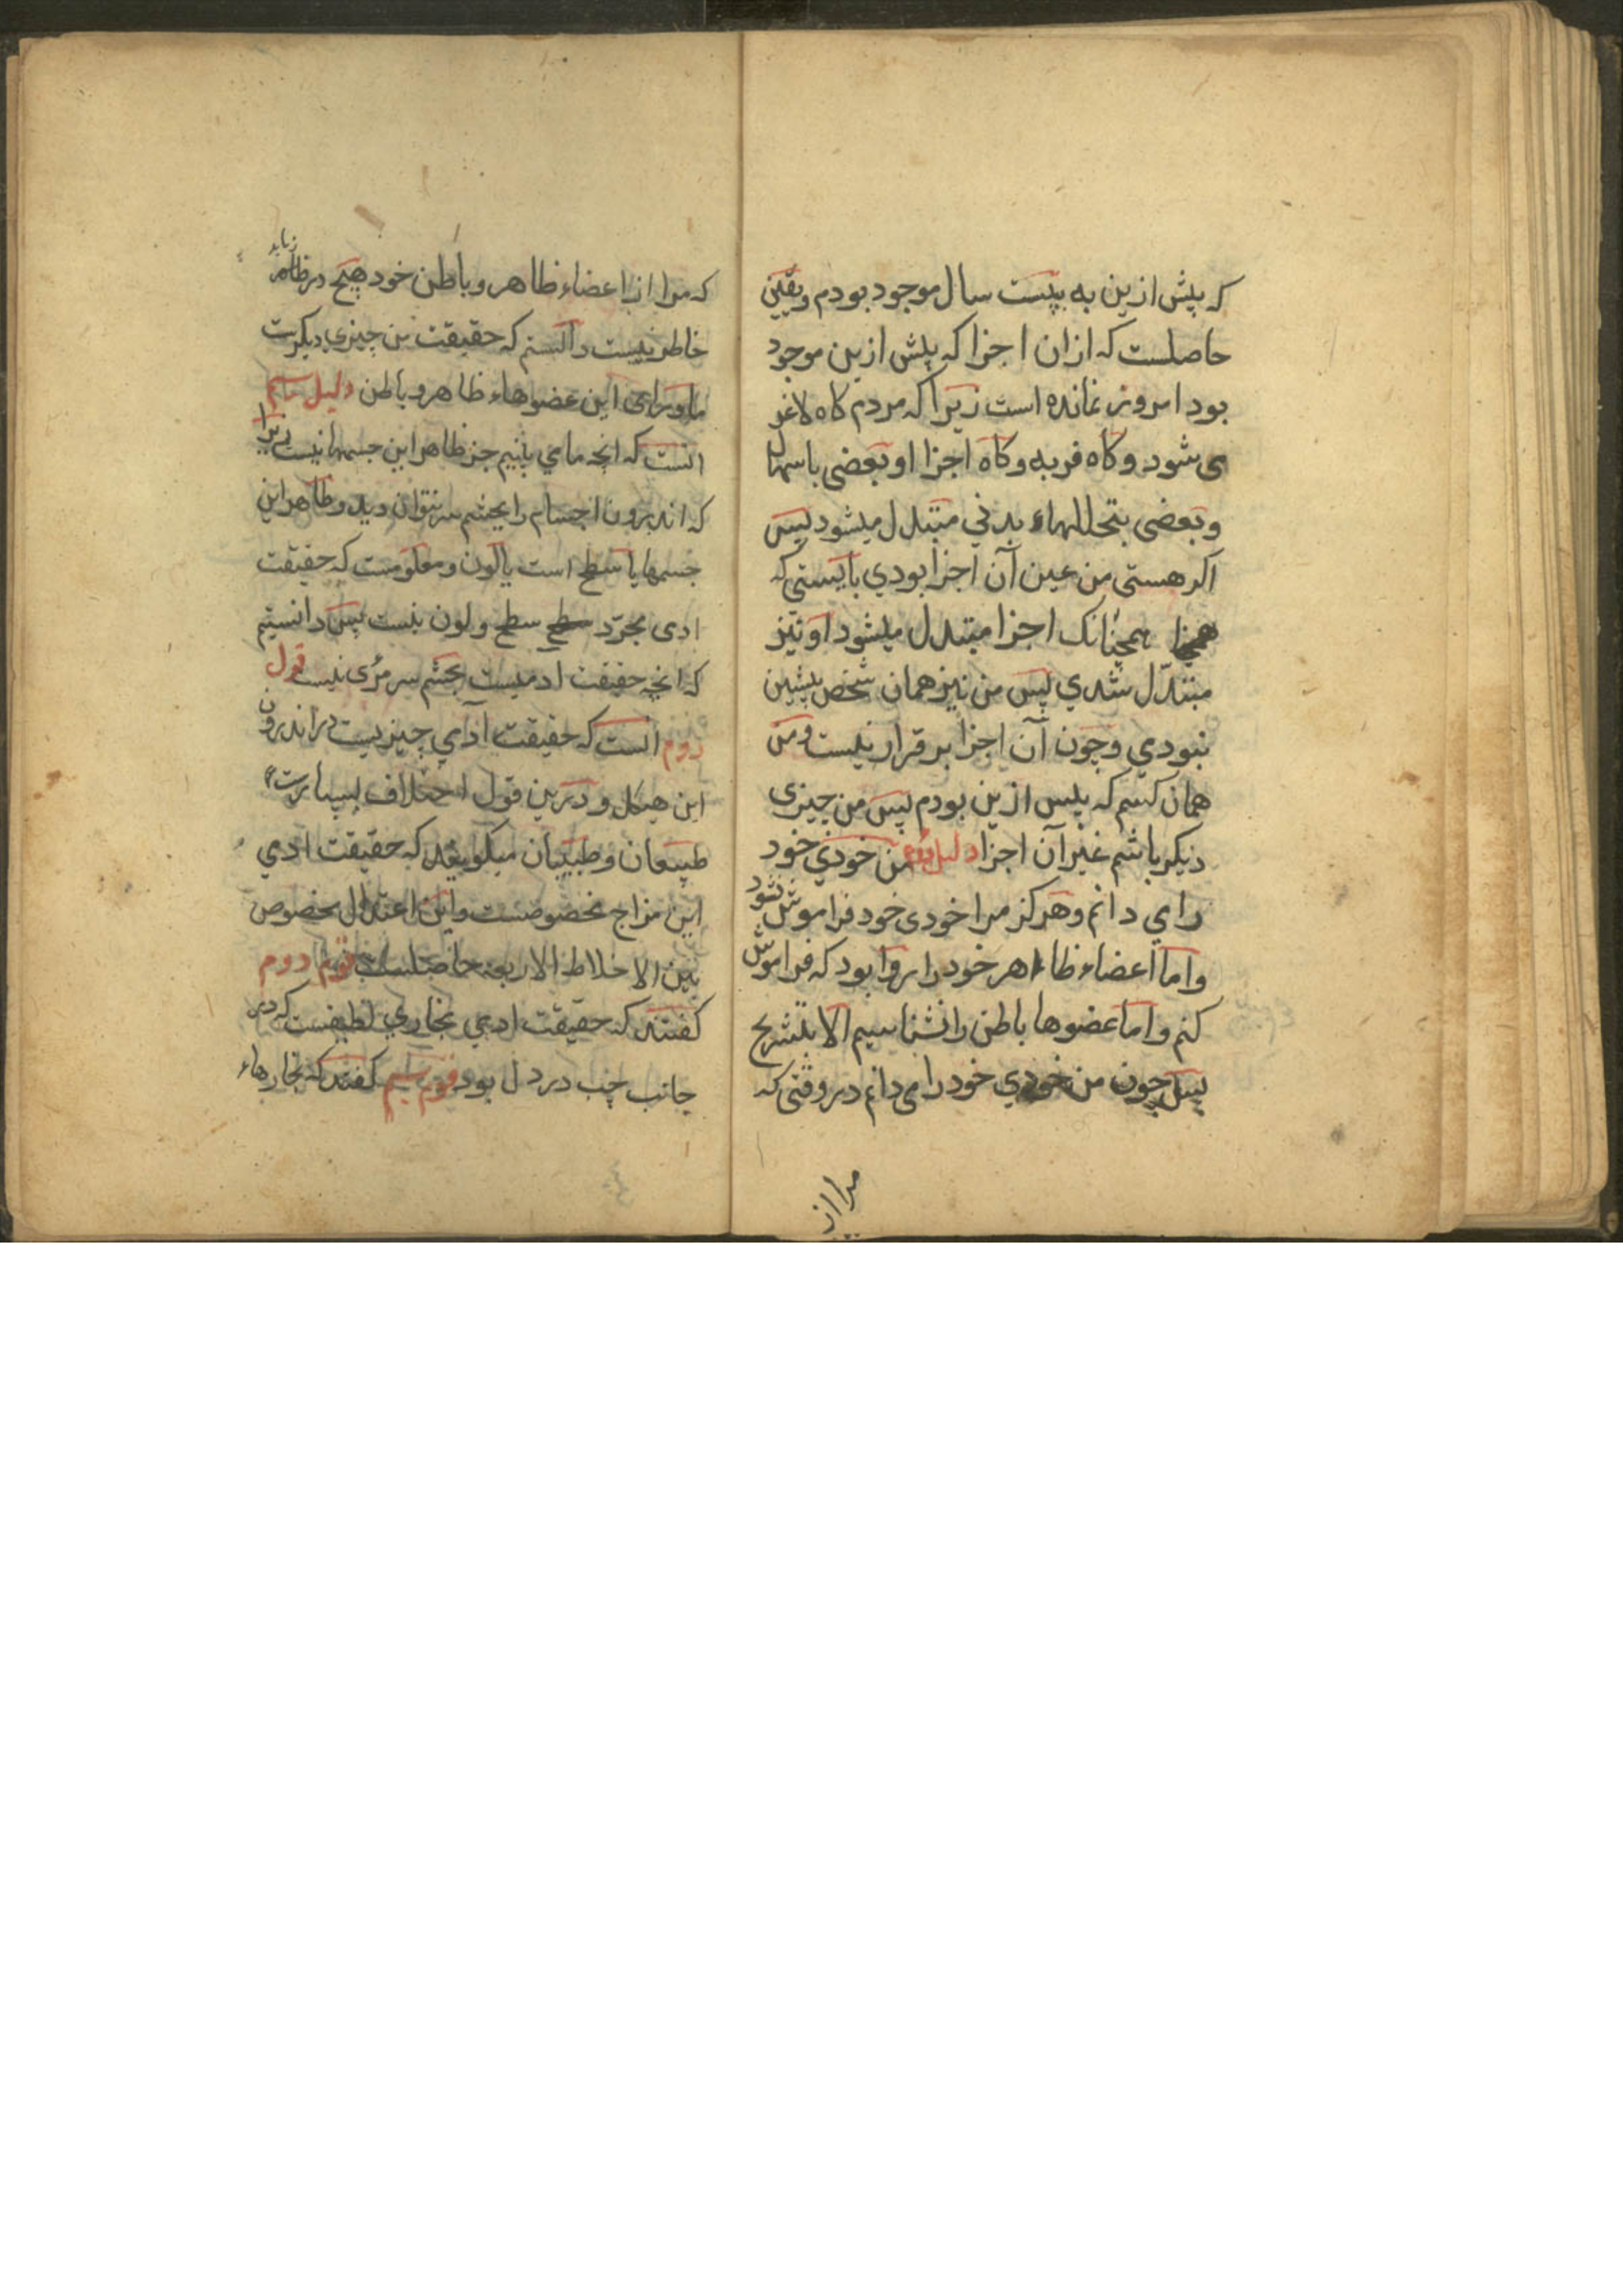 که پیش ازین به بیست سال موجود بودم و یقین
حاصلست که ازان اجزا که پیش ازین موجود
بود امروز نمانده است زیرا که مردم کاه لاغر
می شود و کاه فربه و کاه اجزا او بعضی باسهال
و بعضی بتحللهاء بدنی متبدل میشود پس
اکر هستی من عین آن اجزا بودی بایستی که
همچنانک اجزا متبدل میشود او نیز
متبدّل شدی پس من نیز همان شخص پیشین
نبودی و چون آن اجزا بر قرار نیست و من
همان کسم که پیس ازین بودم پس من چیزی
دیکر باشم غیر آن اجزا دلیل دوم من خودی خود
را می دانم و هرکز مرا خودی خود فراموش نشود
و اما اعضاء ظاهر خود را روا بود که فراموش
کنم و اما عضوها باطن را نشناسیم الا بتشریح
پس چون من خودی خود را می دانم در وقتی که
مرا از
که مرا از اعضاء ظاهر و باطن خود هیچ در ظاهر
خاطر نیست دانستم که حقیقت من چیزی دیکرست
ماورای این عضوهاء ظاهر و باطن دلیل سیم
انست که انچه ما می بینیم جز ظاهر این جسمها نیست زیرا
که اندرون اجسام را بچشم سر نتوان دید و ظاهر این
جسمها یا سطح است یا لون و معلومست که حقیقت
ادمی مجرّد سطح سطح و لون نیست پس دانستیم
که انچه حقیقت ادمیست بچشم سر مرئی نیست قول
دوم انست که حقیقت آدمی چیزیست در اندرون
این هیکل و درین قول اختلاف بسیارست
طبیعیان و طبیبان میکویند که حقیقت ادمی
این مزاج مخصوصست و این اعتدال مخصوص
بین الاخلاط الاربعه حاصلست قوم دوم
کفتند که حقیقت ادمی بخاری لطیفست که در
جانب چپ در دل بود قوم سیم کفتند که بخارهاء